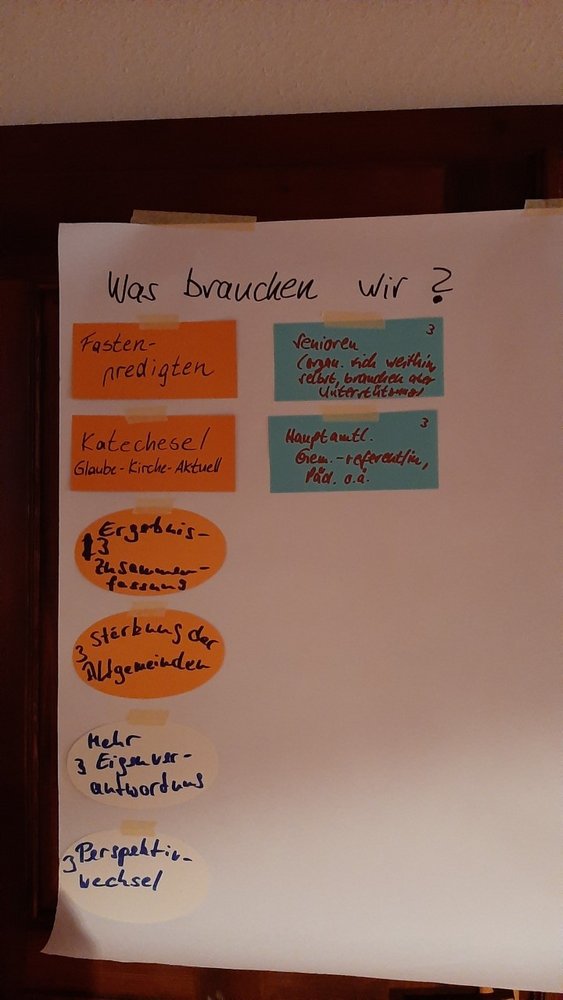 Was brauchen wir?
Fasten-
predigten
Katechese/
Glaube-Kirche-Aktuell
Ergebnis-
3
Zusammen-
fassung
Stärkung der
3
Altgemeinden
Mehr
3 Eigenver-
antwortung
3 Perspektiv-
wechsel
3
Senioren
(organ. sich weithin
selbst, brauchen aber
Unterstützung)
3
Hauptamtl.
Gem.-referent/in,
Päd. o.ä.